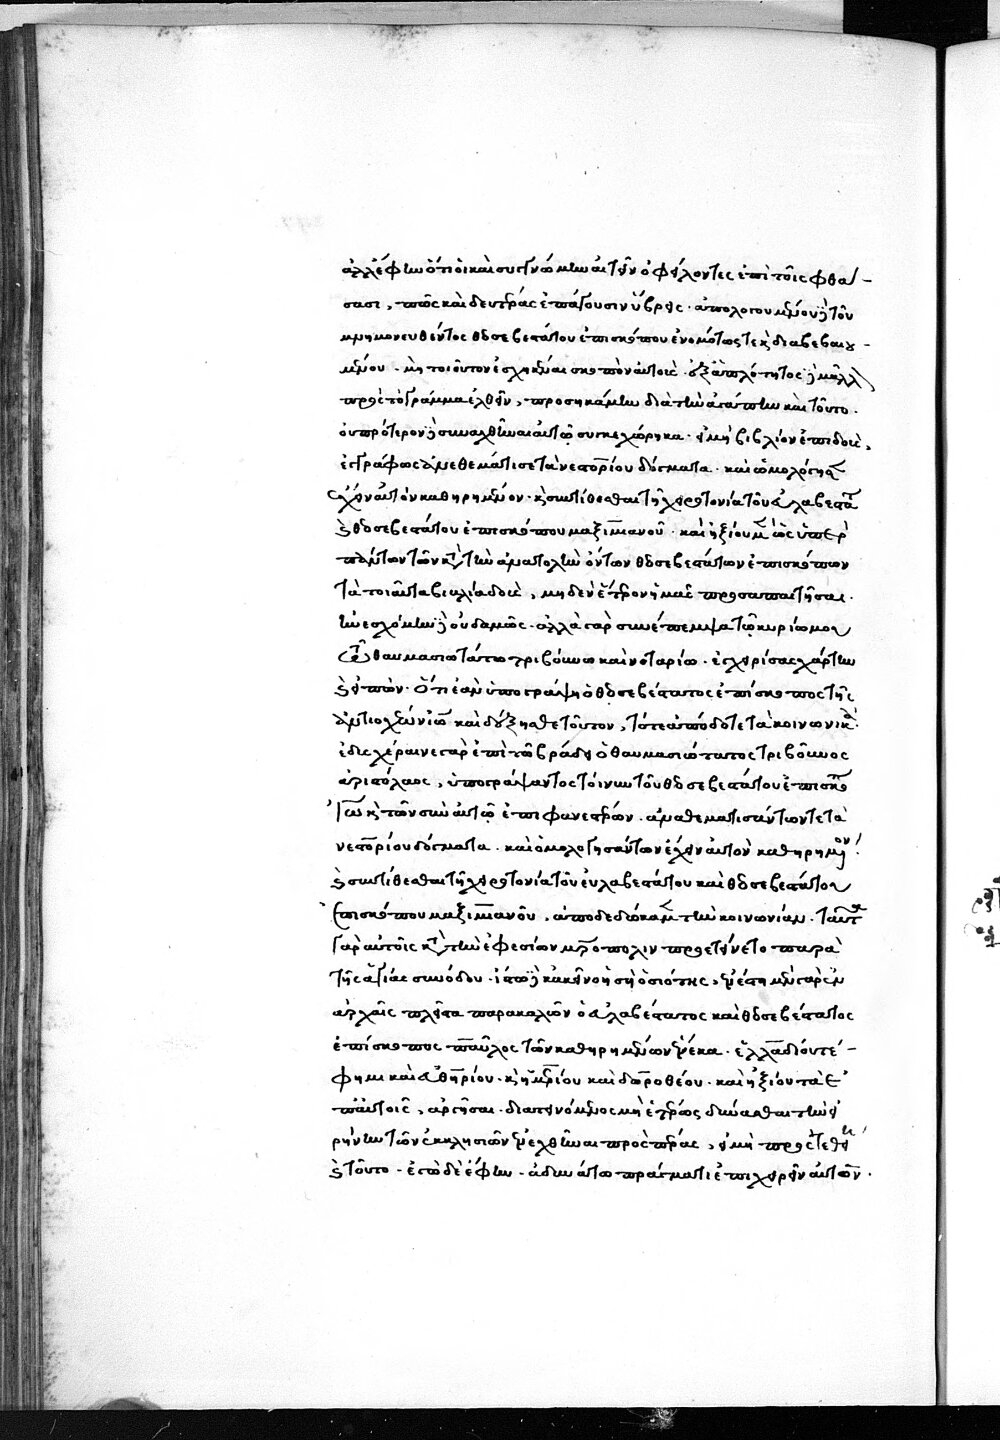 ἀλλ' ἔφην ὅτι οἱ καὶ συγγνώμην αἰτεῖν ὀφείλοντες ἐπὶ τοῖς φθά-
σασι, πῶς καὶ δευτέρας ἐπάγουσιν ὕβρεις. ἀπολογουμένου δὲ τοῦ
μνημονευθέντος θεοσεβεστάτου ἐπισκόπου ἐνωμότως τε καὶ διαβεβαιου-
μένου. μὴ τοιοῦτον ἐσχηκέναι σκοπὸν αὐτοὺς. ἐξ ἁπλότητος δὲ μᾶλλ
πρὸς τὸ γράμμα ἐλθεῖν, προσηκάμην διὰ τὴν ἀγάπην καὶ τοῦτο.
οὐ πρότερον δὲ συναχθῆναι αὐτῷ συγκεχώρηκα. εἰ μὴ βιβλίον ἐπιδοὺς,
ἐγγράφως ἀνεθεμάτισε τὰ νεστορίου δόγματα. καὶ ὡμολόγησεν
ἔχειν αὐτὸν καθῃρημένον. καὶ συντίθεσθαι τῇ χειροτονίᾳ τοῦ εὐλαβεστά
καὶ θεοσεβεστάτου ἐπισκόπου μαξιμιανοῦ. καὶ ἠξίου μὲν ὡς ὑπὲρ
πάντων τῶν κατὰ τὴν ἀνατολὴν ὄντων θεοσεβεστάτων ἐπισκόπων
τὰ τοιαῦτα βιβλία δοὺς, μηδὲν ἕτερον ἡμᾶς προσαπαιτῆσαι.
ἠνεσχόμην δὲ οὐδαμῶς. ἀλλὰ γὰρ συνέπεμψα τῷ κυρίῳ μου
τῷ θαυμασιωτάτῳ τριβούνῳ καὶ νοταρίῳ. ἐγχειρίσας χάρτην
καὶ εἰπών. ὅτι ἐὰν ὑπογράψῃ ὁ θεοσεβέστατος ἐπίσκοπος τῆς
ἀντιοχέων ἰωάν καὶ δέξησθε τοῦτον, τότε ἀπόδοτε τὰ κοινωνικά.
ἐδυσχέραινε γὰρ ἐπὶ τῷ βράδει ὁ θαυμασιώτατος τριβοῦνος
ἀριστόλαος, ὑπογράψαντος τοίνυν τοῦ θεοσεβεστάτου ἐπισκό
ἰωάν καὶ τῶν σὺν αὐτῷ ἐπιφανεστέρων. ἀναθεματισάντων τε τὰ
νεστορίου δόγματα. καὶ ὁμολογησάντων ἔχειν αὐτὸν καθῃρημένον.
καὶ συντίθεσθαι τῇ χειροτονίᾳ τοῦ εὐλαβεστάτου καὶ θεοσεβεστάτου
ἐπισκόπου μαξιμιανοῦ, ἀποδεδώκαμεν τὴν κοινωνίαν. ταῦτα
γὰρ αὐτοῖς κατὰ τὴν ἐφεσίων μητρόπολιν προετείνετο παρὰ
τῆς ἁγίας συνόδου. ἴστω δὲ κἀκεῖνο ἡ σὴ ὁσιότης, ἐπέστη μὲν γὰρ ἐν
ἀρχαῖς πλεῖστα παρακαλῶν ὁ εὐλαβέστατος καὶ θεοσεβέστατος
ἐπίσκοπος παῦλος τῶν καθῃρημένων ἕνεκα. ἑλλαδίου τέ
φημι καὶ εὐθηρίου. καὶ ἱμερίου καὶ δωροθέου. καὶ ἠξίου τὰ ἐ
π' αὐτοῖς, ἀργῆσαι. διατεινόμενος μὴ ἑτέρως δύνασθαι τὴν εἰ
ρήνην τῶν ἐκκλησιῶν ἐξελθῆναι πρὸς πέρας, εἰ μὴ προστεθείη
καὶ τοῦτο. ἐγὼ δὲ ἔφην. ἀδυνάτῳ πράγματι ἐπιχειρεῖν αὐτόν.